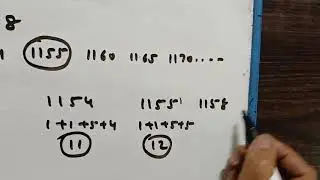 8
1155 1160 1165 1170....
1154 1155 1158
1+1+5+4 1+1+5+5
11 12